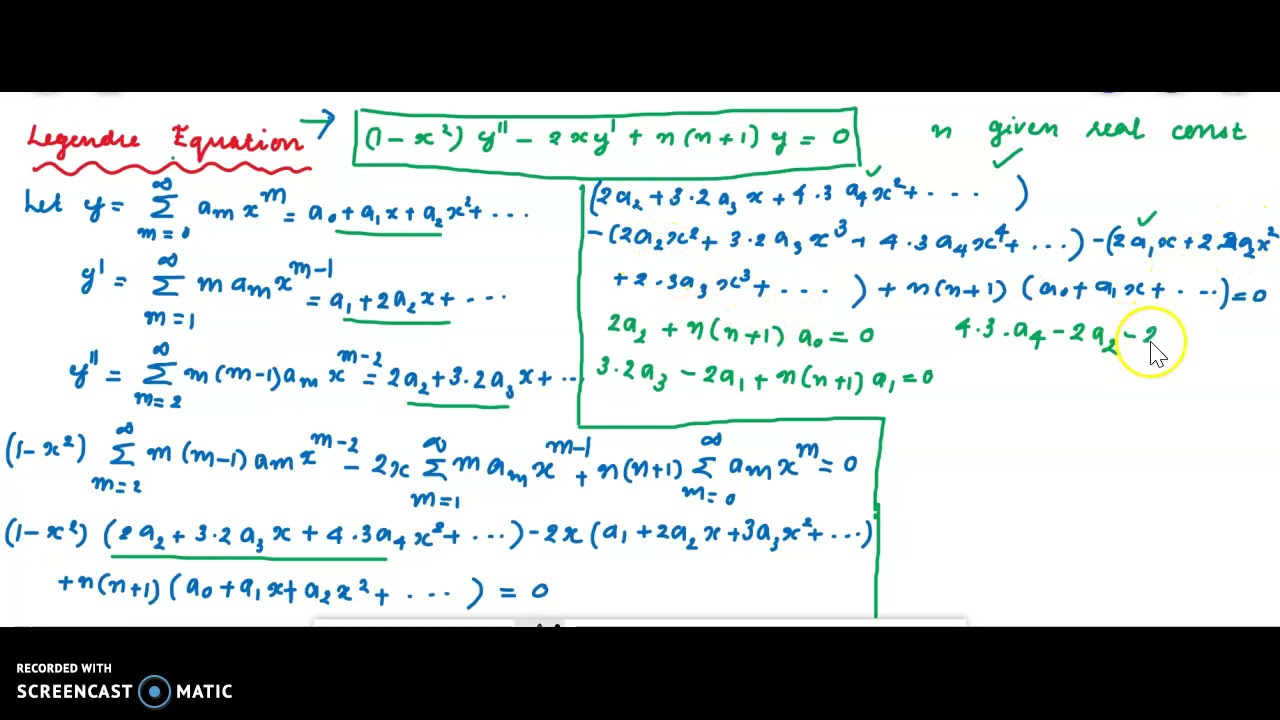 Legendre Equation → (1-x²) y'' - 2xy' + n(n+1) y = 0 n given real const
Let y = ∑_{m=0}^{∞} aₘ x^m = a₀ + a₁x + a₂x² + ...
y' = ∑_{m=1}^{∞} m aₘ x^{m-1} = a₁ + 2a₂x + ...
y'' = ∑_{m=2}^{∞} m(m-1) aₘ x^{m-2} = 2a₂ + 3.2a₃x + ...
(1-x²) ∑_{m=2}^{∞} m(m-1) aₘ x^{m-2} - 2x ∑_{m=1}^{∞} m aₘ x^{m-1} + n(n+1) ∑_{m=0}^{∞} aₘ x^m = 0
(1-x²) (2a₂ + 3.2a₃x + 4.3a₄x² + ...) - 2x(a₁ + 2a₂x + 3a₃x² + ...)
+ n(n+1) (a₀ + a₁x + a₂x² + ...) = 0
(2a₂ + 3.2a₃x + 4.3a₄x² + ...)
-(2a₂x² + 3.2a₃x³ + 4.3a₄x⁴ + ...) -(2a₁x + 2.2a₂x²
+ 2.3a₃x³ + ...) + n(n+1) (a₀ + a₁x + ...) = 0
2a₂ + n(n+1) a₀ = 0 4.3.a₄ - 2a₂ - 2
3.2a₃ - 2a₁ + n(n+1) a₁ = 0
RECORDED WITH
SCREENCAST MATIC